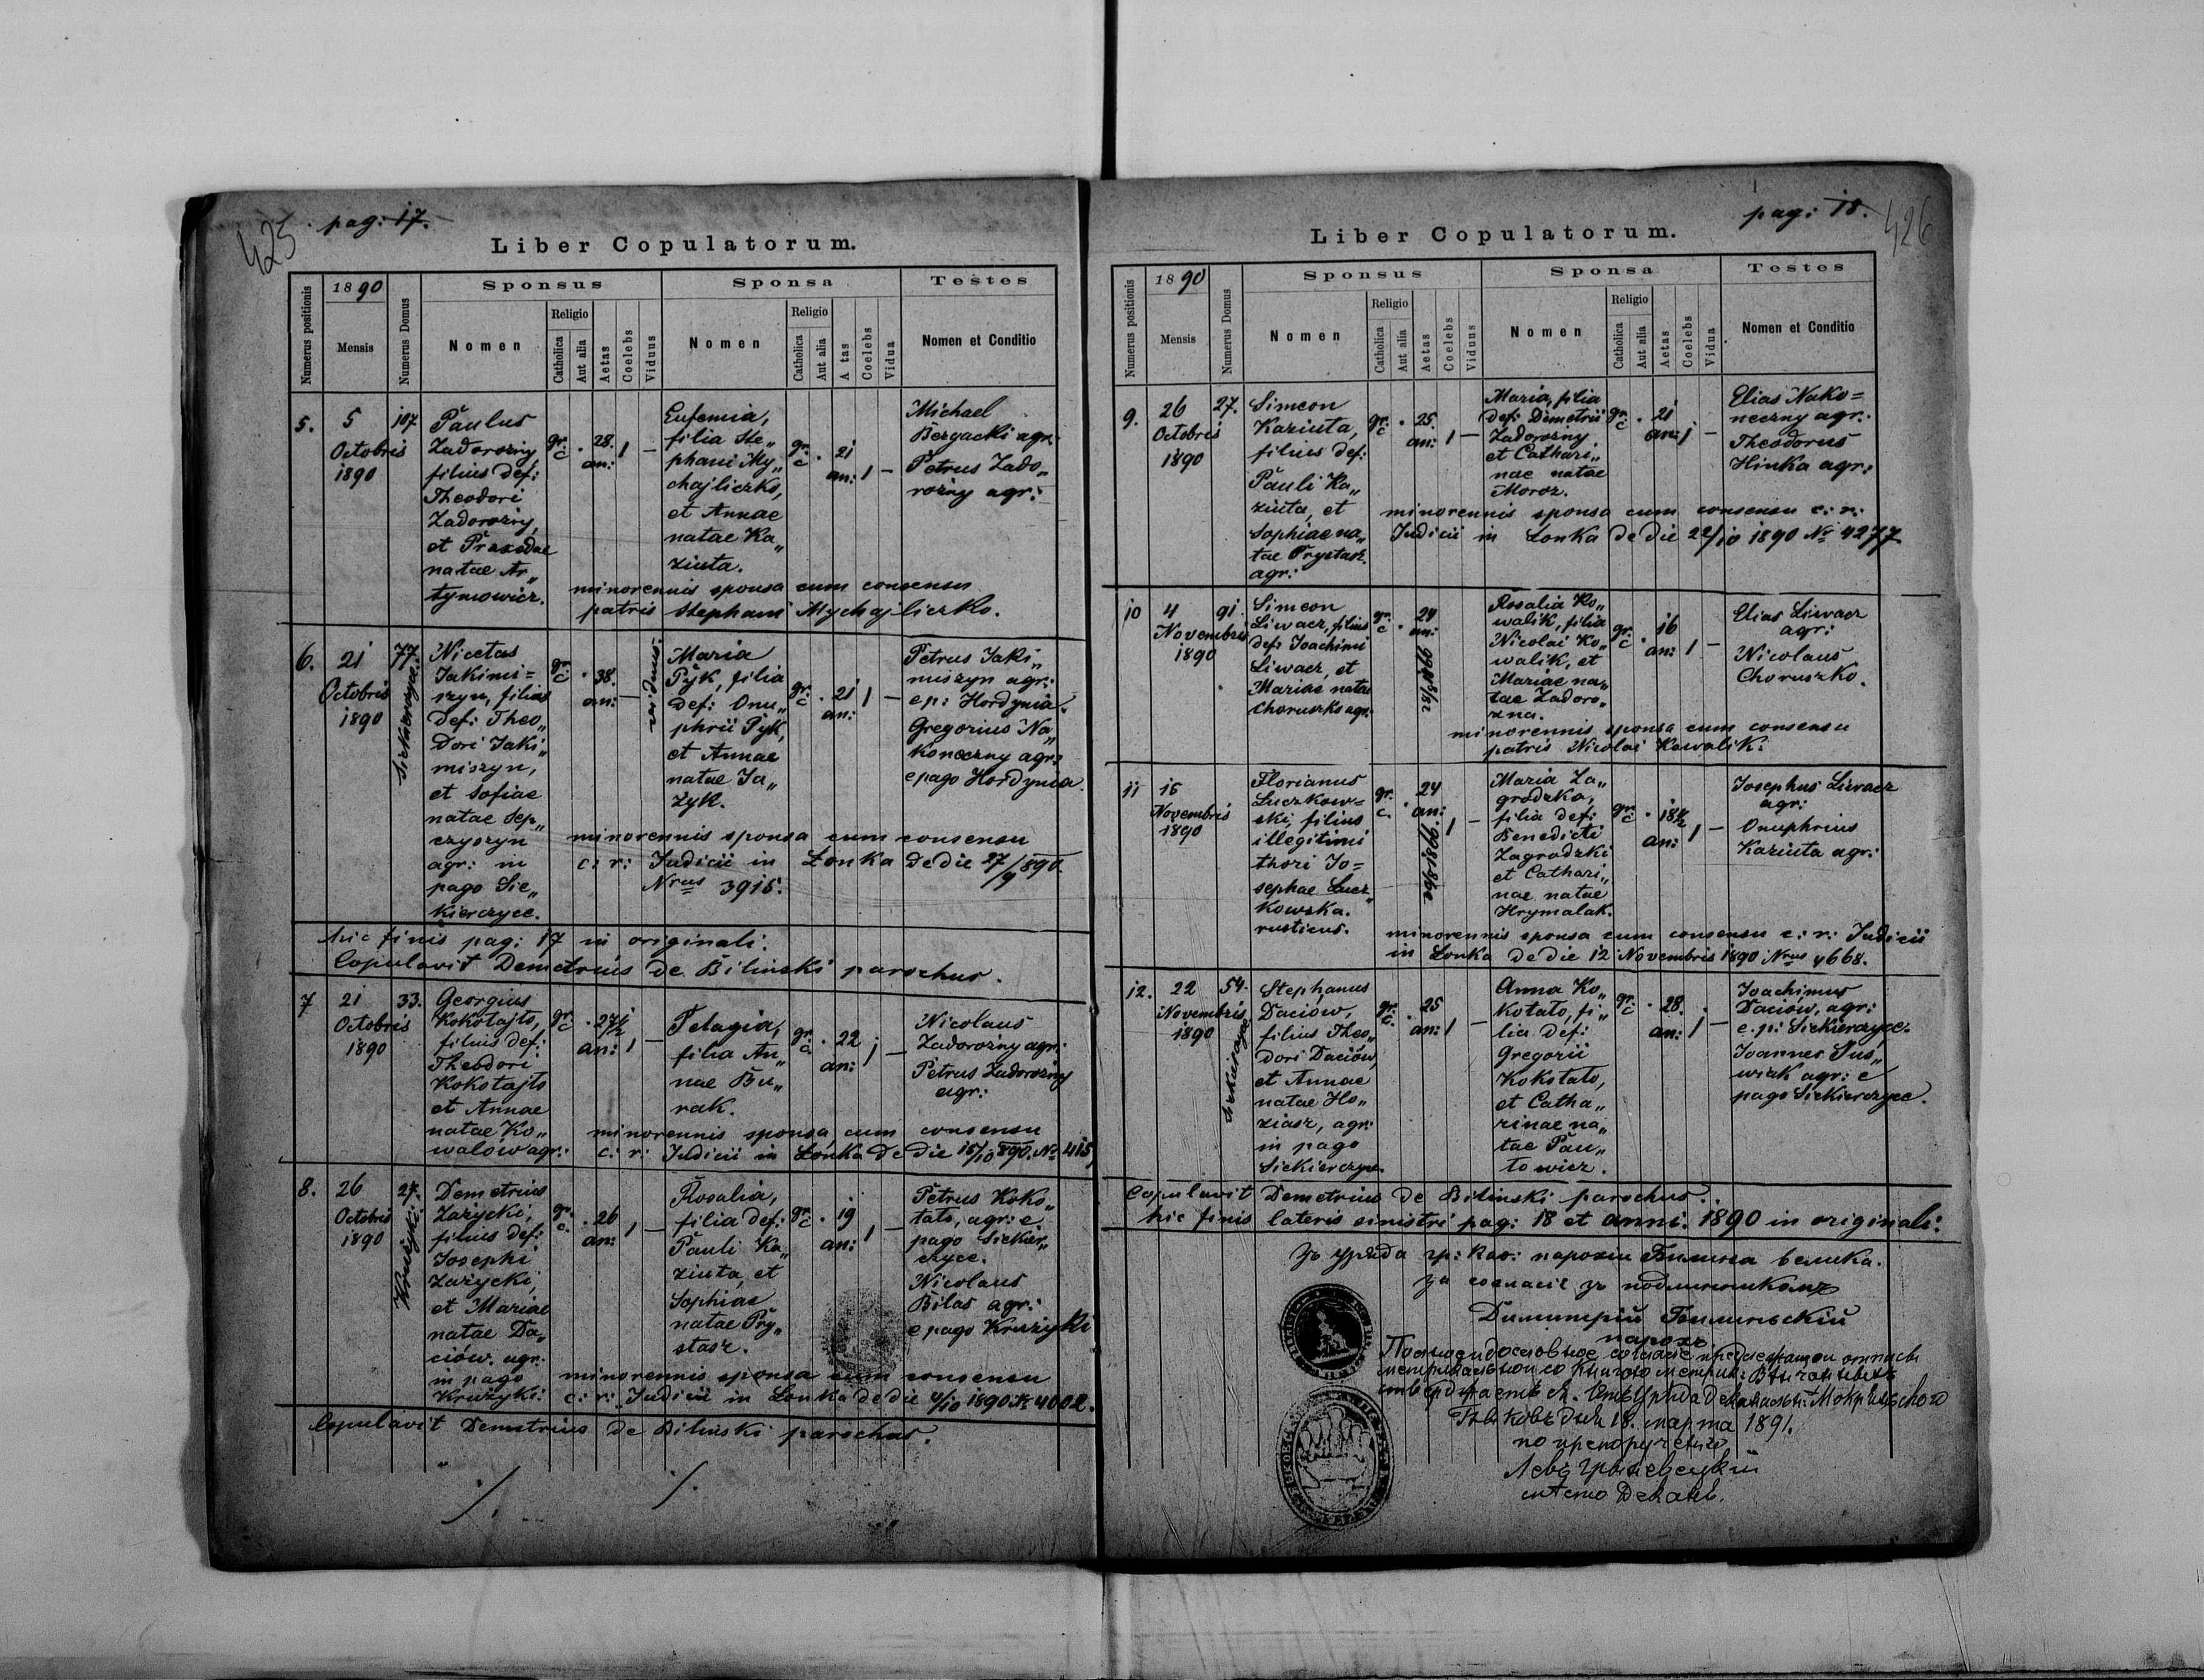 425
pag: 17.
Liber Copulatorum.
Numerus positionis
1890
Mensis
Numerus Domus
Sponsus
Nomen
Religio
Catholica
Aut alia
Aetas
Coelebs
Viduus
Sponsa
Nomen
Religio
Catholica
Aut alia
A tas
Coelebs
Vidua
Testes
Nomen et Conditio
5.
5
Octobris
1890
107
Paulus
Zadorożny
filius def:
Theodori
Zadorożny,
et Praxedae
natae Ar„
tymowicz.
gr.
c
28.
an:
1
—
Eufemia,
filia Ste„
phani My„
chajliczko,
et Annae
natae Ka„
ziuta.
gr.
c
21
an:
1
—
Michael
Bezgacki agr:
Petrus Zado„
rożny agr:
minorennis sponsa cum consensu
patris Stephani Mychajliczko.
6.
21
Octobris
1890
77.
Siekierczyce.
Nicetas
Jakimi=
szyn, filius
def: Theo„
dori Jaki„
miszyn,
et Sofiae
natae Sep„
czyszyn
agr: in
pago Sie„
kierczyce.
gr.
c
38.
an:
—
viduus.
Maria
Pyk, filia
def: Onu„
phrii Pyk,
et Annae
natae Ja„
zyk.
gr.
c
21
an:
1
—
Petrus Jaki„
miszyn agr:
e p: Hordynia.
Gregorius Na„
koneczny agr:
e pago Hordynia.
minorennis sponsa cum consensu
c: r: Judicii in Łonka de die 27/9 890.
Nrus 3915.
hic finis pag: 17 in originali.
Copulavit Demetrius de Biliński parochus.
7
21
Octobris
1890
33.
Georgius
Kokotajło,
filius def:
Theodori
Kokotajło
et Annae
natae Ko„
walów agr:
gr.
c
27½
an:
1
—
Pelagia,
filia An„
nae Bu„
rak.
gr.
c
22
an:
1
—
Nicolaus
Zadorożny agr:
Petrus Zadorożny
agr:
minorennis sponsa cum consensu
c: r: Judicii in Łonka de die 15/10 890. No
8.
26
Octobris
1890
27.
Krużyki:
Demetrius
Zarycki,
filius def:
Josephi
Zarycki,
et Mariae
natae Da„
ciów. agr.
in pago
Krużyki:
gr.
c.
26
an:
1
—
Rosalia,
filia def:
Pauli Ka„
ziuta, et
Sophiae
natae Pry„
stasz.
gr.
c
19
an:
1
—
Petrus Koko„
tało, agr: e.
pago Siekier„
czyce.
Nicolaus
Bilas agr:
e pago Krużyki
minorennis sponsa cum consensu
c: r: Judicii in Łonka de die 4/10 1890 No 4002.
Copulavit Demetrius de Biliński parochus.
·/.
·/.
pag: 18.
426
Liber Copulatorum.
Numerus positionis
1890
Mensis
Numerus Domus
Sponsus
Nomen
Religio
Catholica
Aut alia
Aetas
Coelebs
Viduus
Sponsa
Nomen
Religio
Catholica
Aut alia
Aetas
Coelebs
Vidua
Testes
Nomen et Conditio
9.
26
Octobris
1890
27.
Simeon
Kaziuta,
filius def:
Pauli Ka„
ziuta, et
Sophiae na„
tae Prystasz.
agr:
gr.
c
25.
an:
1
—
Maria, filia
def: Demetrii
Zadorożny.
et Cathari„
nae natae
Moroz.
gr.
c
21
an:
1
—
Elias Nako=
neczny agr:
Theodorus
Hinka agr:
minorennis sponsa cum consensu c: r:
Judicii in Łonka de die 22/10 1890 No 4277
10
4
Novembris
1890
91.
Simeon
Liwacz, filius
def: Joachimi
Liwacz, et
Mariae natae
Choruszko agr.
gr.
c
24
an:
Rosalia Ko„
walik, filia
Nicolai Ko„
walik, et
Mariae na„
tae Zadoro„
żna.
gr.
c
16
an:
1
—
Elias Liwacz
agr:
Nicolaus
Choruszko.
minorennis sponsa cum consensu
patris Nicolai Kowalik:
11
15
Novembris
1890
Florianus
Łuczkow=
ski, filius
illegitimi
thori Jo=
sephae Łucz„
kowska.
rusticus.
gr.
c.
24
an:
1
—
Maria Za„
grodzka,
filia def:
Benedicti
Zagrodzki
et Cathari„
nae natae
Hrymalak.
gr.
c
18½
an:
1
—
Josephus Liwacz
agr:
Onuphrius
Kaziuta agr:
minorennis sponsa cum consensu c: r: Judicii
in Łonka de die 12 Novembris 1890 Nrus 4668.
12.
22
Novembris
1890
54.
Siekierczyce
Stephanus
Daciów,
filius Theo„
dori Daciów,
et Annae
natae Ho„
ziasz, agr:
in pago
Siekierczyce.
gr.
c.
25
an:
1
—
Anna Ko„
kotało, fi„
lia def:
Gregorii
Kokotało,
et Catha„
rinae na„
tae Pau„
towicz.
gr.
c
28.
an:
1
—
Joachimus
Daciów, agr:
e. p: Siekierczyce.
Joannes Sus„
wiak agr: e
pago Siekierczyce.
Copulavit Demetrius de Biliński parochus.
hic finis lateris sinistri pag: 18 et anni: 1890 in originali:
Зъ уряда гр: кат: парохіи Билинка велика.
за согласіе зъ подлинникомъ
Димитрій Билиньскій
парохъ
18. марта 1891.
по препорученію